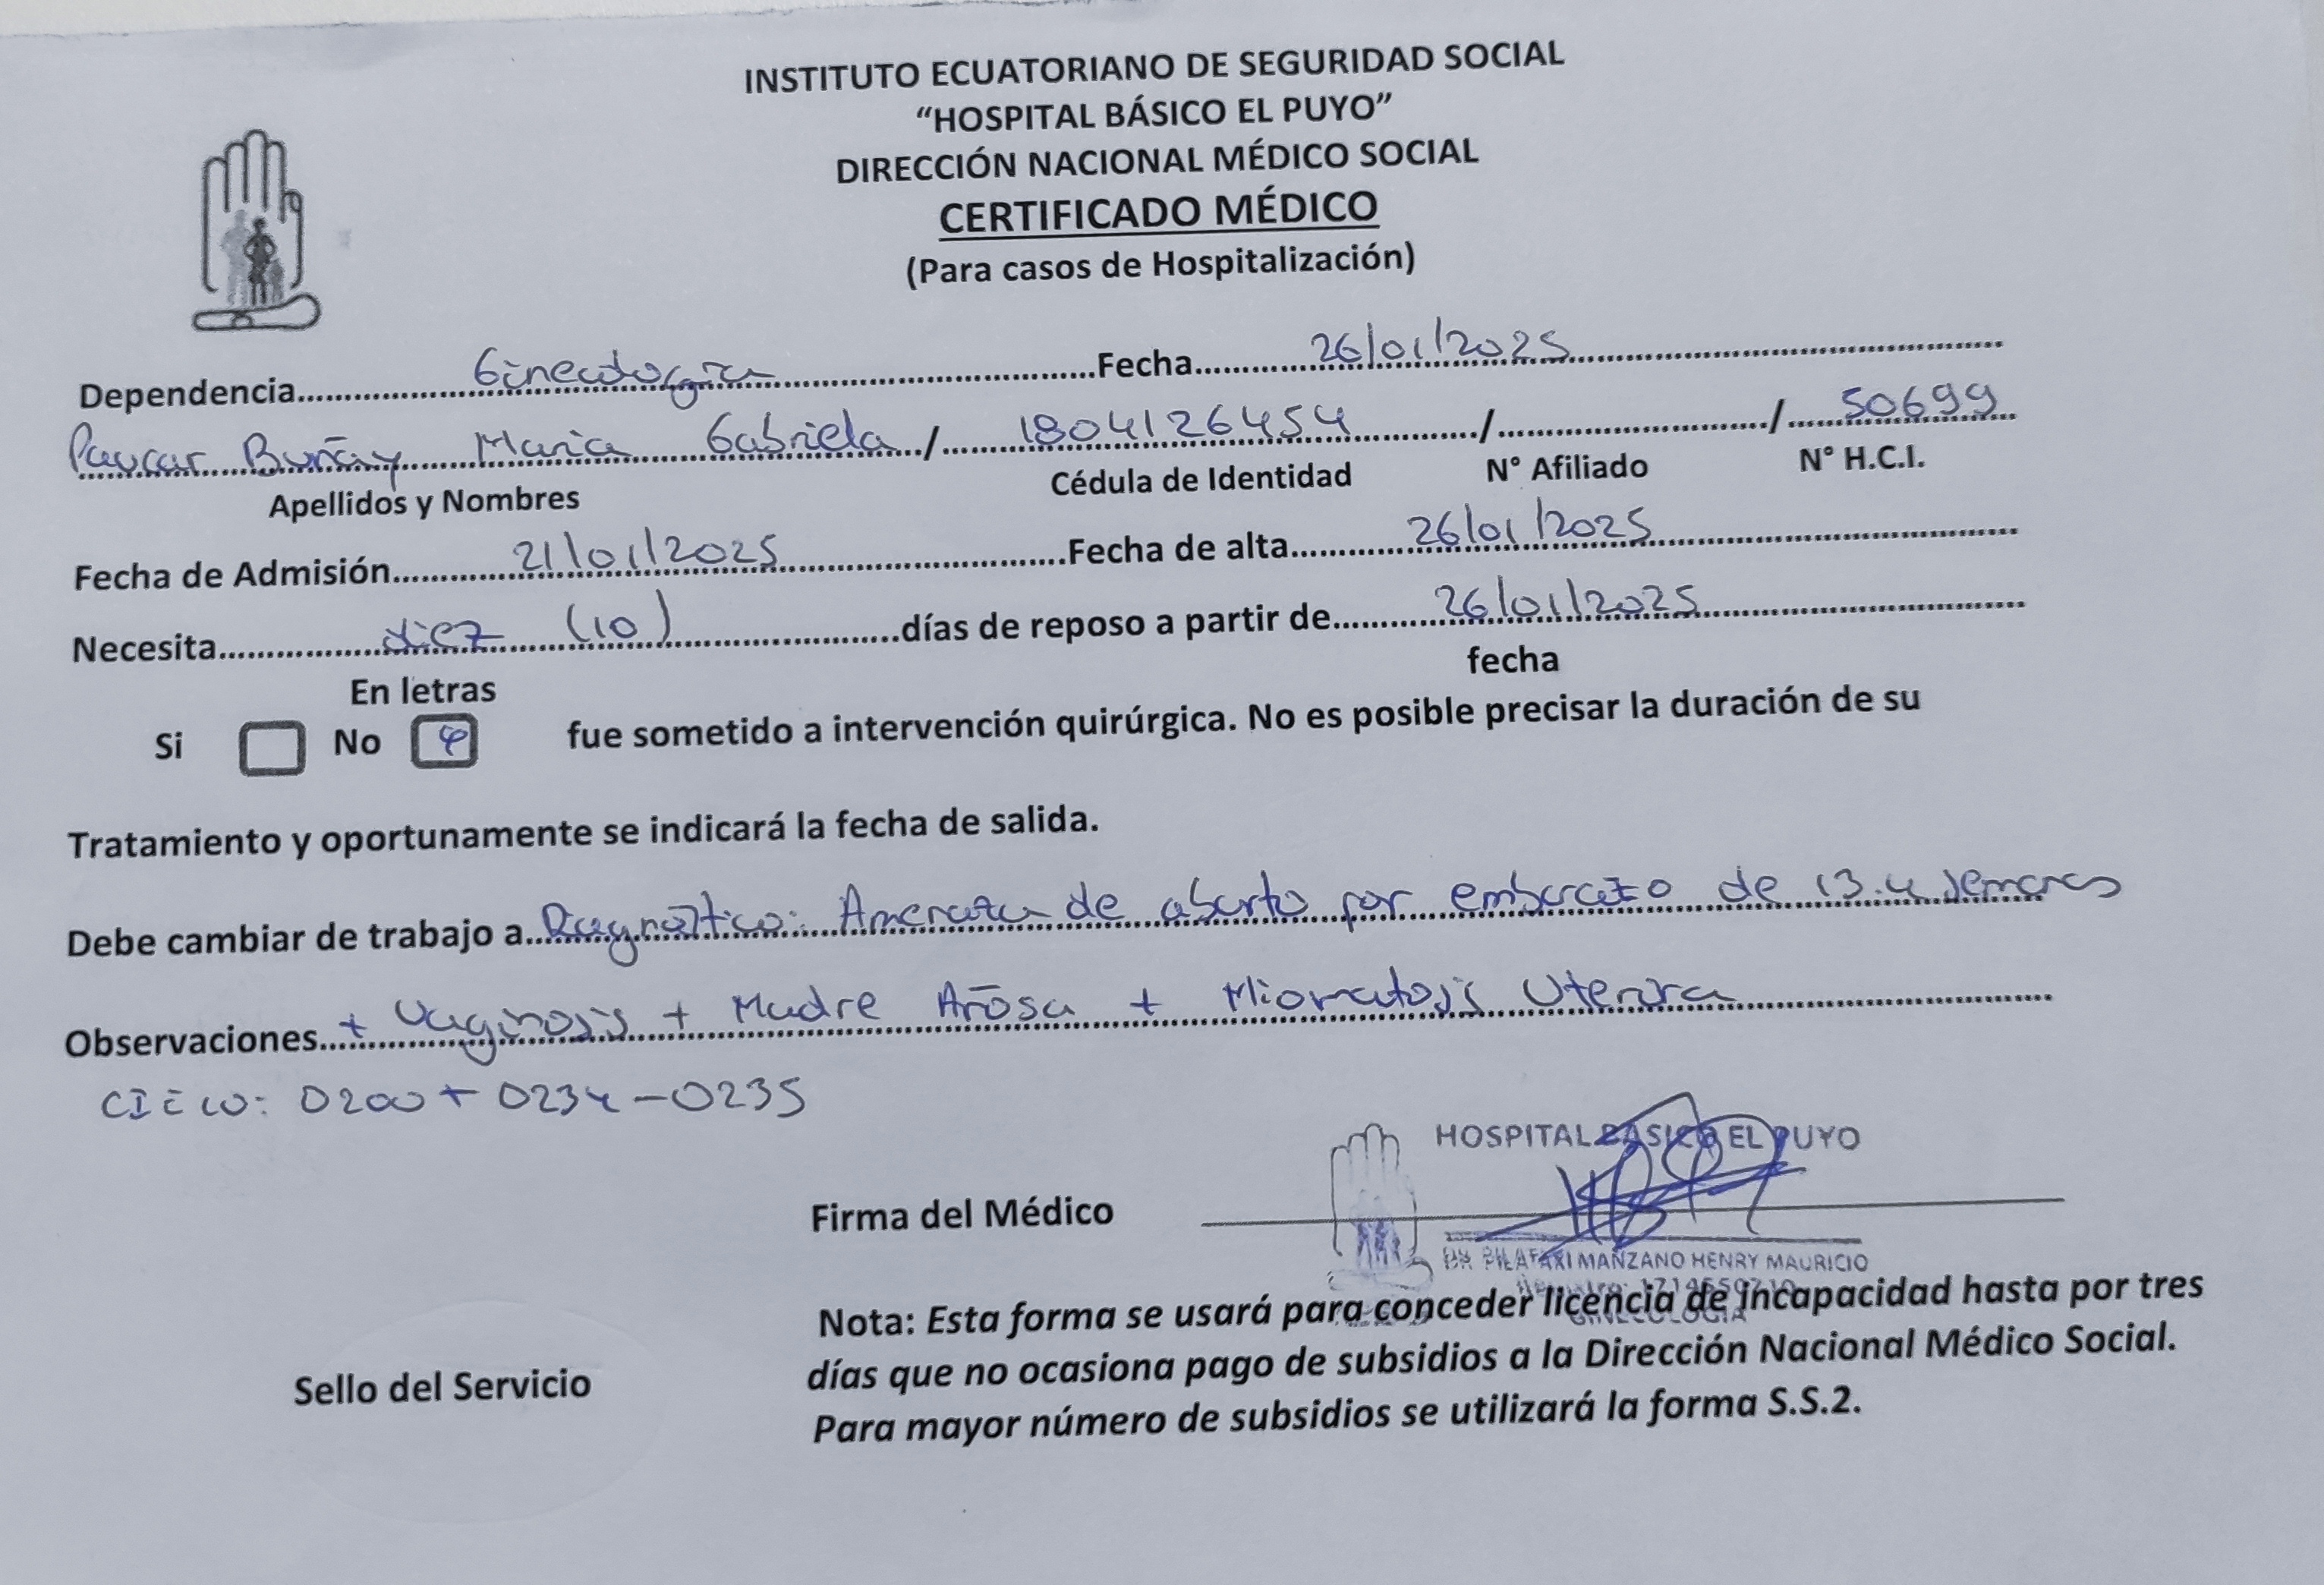 INSTITUTO ECUATORIANO DE SEGURIDAD SOCIAL
“HOSPITAL BÁSICO EL PUYO”
DIRECCIÓN NACIONAL MÉDICO SOCIAL
CERTIFICADO MÉDICO
(Para casos de Hospitalización)
Dependencia Ginecología Fecha 26/01/2025
Paucar Buñay Maria Gabriela / 1804126454 / / 50699
Apellidos y Nombres Cédula de Identidad N° Afiliado N° H.C.I.
Fecha de Admisión 21/01/2025 Fecha de alta 26/01/2025
Necesita diez (10) días de reposo a partir de 26/01/2025
En letras fecha
Si No fue sometido a intervención quirúrgica. No es posible precisar la duración de su
Tratamiento y oportunamente se indicará la fecha de salida.
Debe cambiar de trabajo a Diagnóstico: Amenaza de aborto por embarazo de 13.4 semanas
Observaciones + Vaginosis + Madre Añosa + Miomatosis Uterina
CIE 10: O200 + O234 - O235
HOSPITAL BÁSICO EL PUYO
Firma del Médico
MANZANO HENRY MAURICIO
GINECOLOGIA
Nota: Esta forma se usará para conceder licencia de incapacidad hasta por tres
días que no ocasiona pago de subsidios a la Dirección Nacional Médico Social.
Para mayor número de subsidios se utilizará la forma S.S.2.
Sello del Servicio